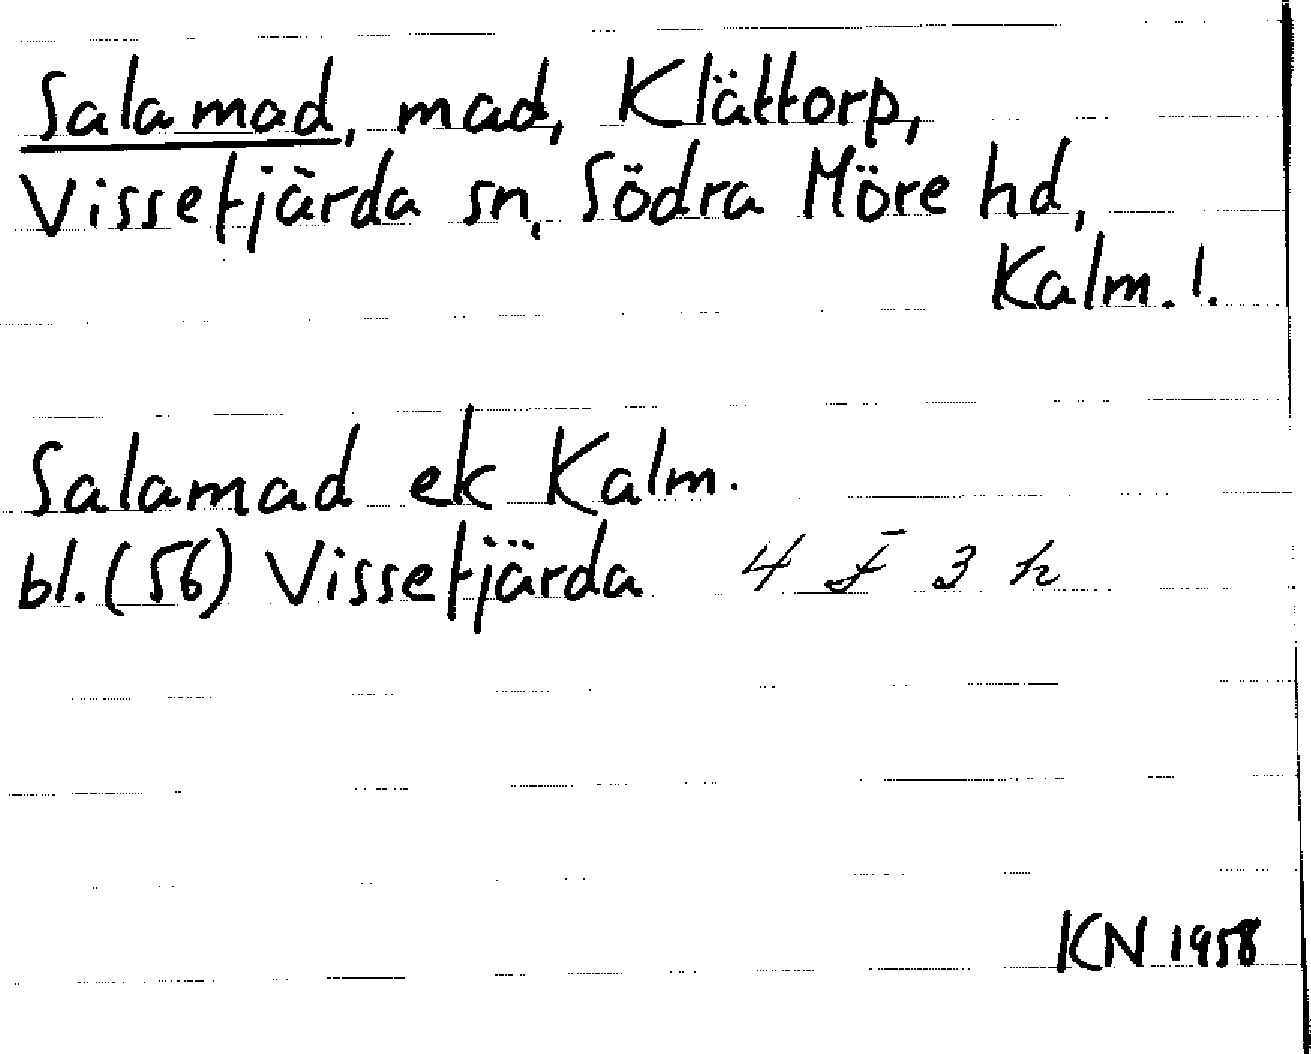 Salamad, mad, Klättorp,
Vissefjärda sn, Södra Möre hd,
Kalm. l.
Salamad ek Kalm.
bl. (56) Vissefjärda 4 F 3 h
KN 1958